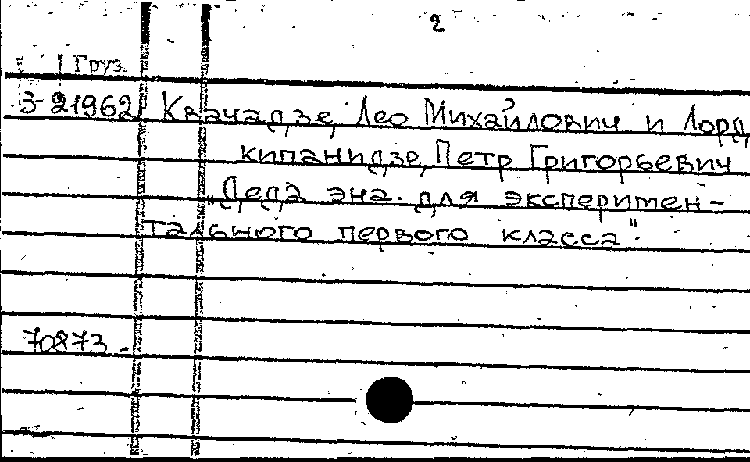 2
Груз.
3-21962 Квачадзе, Лео Михайлович и Лорд,
кипанидзе, Петр Григорьевич
"Деда эна для эксперимен-
тального первого класса".
70873